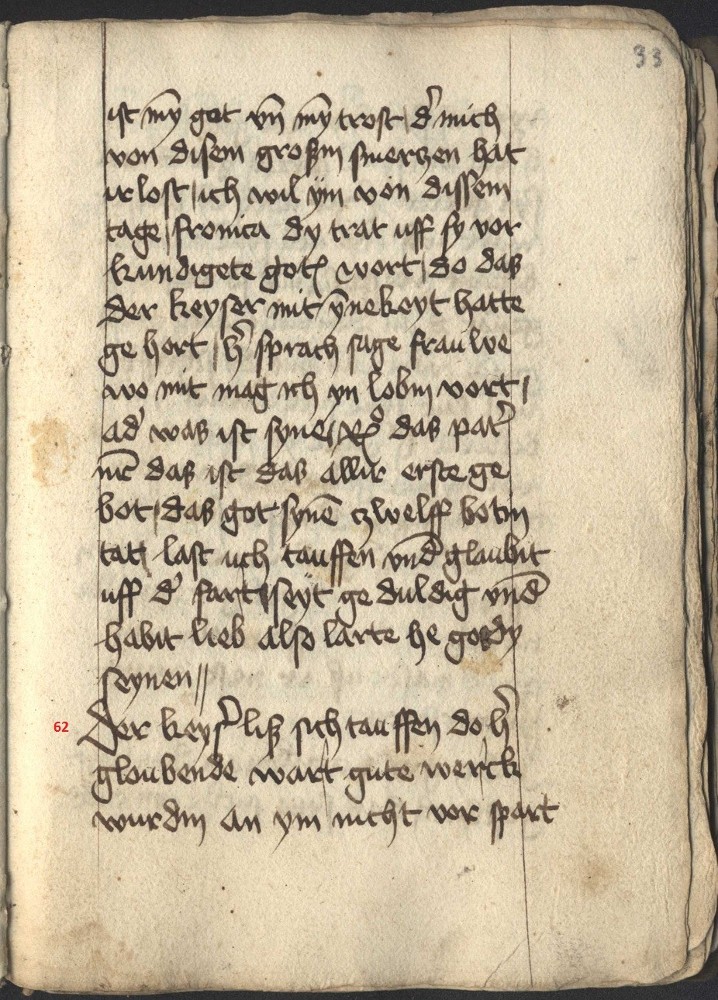 33
ist mȳ got vn̄ mȳ trost / d' mich
von disem großin smerczen hat
irlost / ich wil ym von dissem
tage / fronica dy trat uff sy vor
kundigete gotꝭ wort / do das
der keyser mit ȳnekeyt hatte
ge hort / h' sprach sage frauwe
wo mit mag ich yn lobin vort /
ad' was ist syne das pat'
nr̄ das ist das allir erste ge
bot / das got synē czwelff botin
tat / last uch tauffen vnd glaubit
uff d' fart / seyt ge duldig vnd
habit lieb also larte he gotdy
seynen //
62
Der keys' liß sich tauffen do h'
gloubende wart gute werck
wurdin an ym nicht vor spart